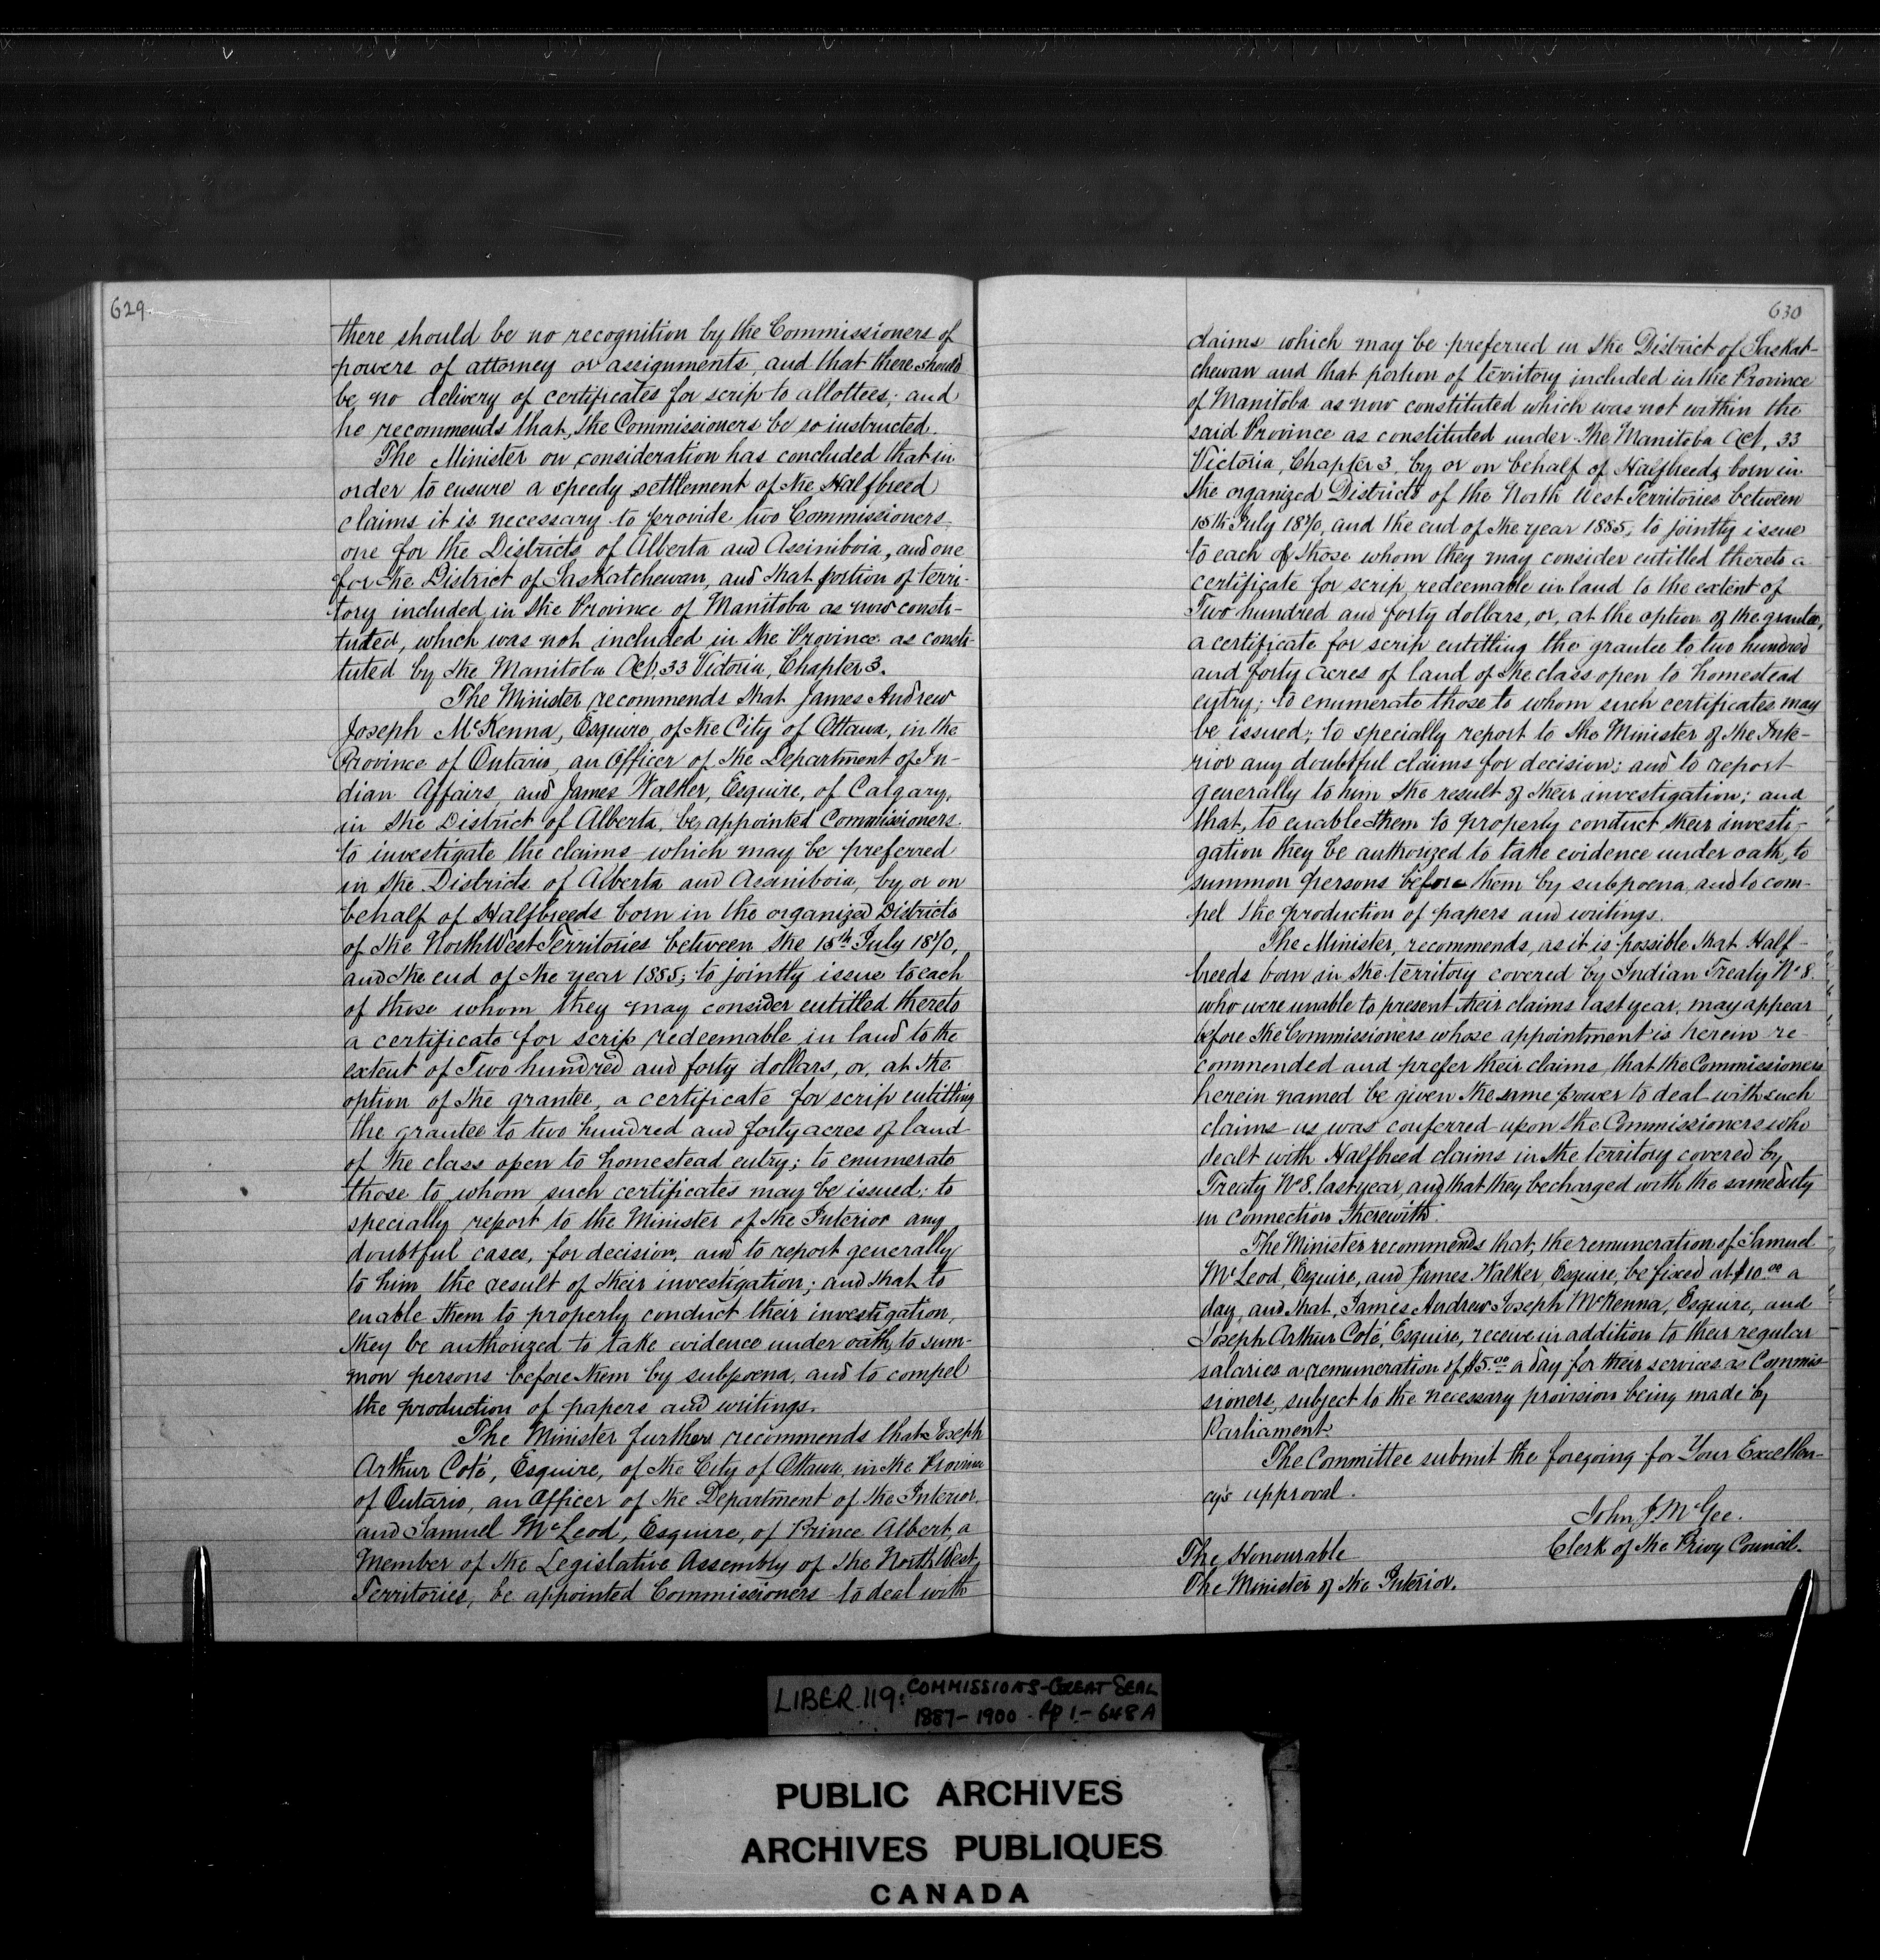 629
there should be no recognition by the Commissioners of
powers of attorney or assignments, and that there should
be no delivery of certificates for scrip to allottees; and
he recommends that, the Commissioners be so instructed.
The Minister on consideration has concluded that in
order to ensure a speedy settlement of the Halfbreed
claims it is necessary to provide two Commissioners,
one for the Districts of Alberta and Assiniboia, and one
for the District of Saskatchewan, and that portion of terri-
tory included in the Province of Manitoba as now consti-
tuted, which was not included in the Province as consti-
tuted by the Manitoba Act, 33 Victoria, Chapter 3.
The Minister recommends that James Andrew
Joseph McKenna, Esquire, of the City of Ottawa, in the
Province of Ontario, an Officer of the Department of In-
dian Affairs, and James Walker, Esquire, of Calgary,
in the District of Alberta, be appointed Commissioners
to investigate the claims which may be preferred
in the Districts of Alberta and Assiniboia, by or on
behalf of Halfbreeds born in the organized Districts
of the North West Territories between the 15th July 1870,
and the end of the year 1885; to jointly issue to each
of those whom they may consider entitled thereto
a certificate for scrip redeemable in land to the
extent of Two hundred and forty dollars, or, at the
option of the grantee, a certificate for scrip entitling
the grantee to two hundred and forty acres of land
of the class open to homestead entry; to enumerate
those to whom such certificates may be issued; to
specially report to the Minister of the Interior any
doubtful cases, for decision, and to report generally
to him the result of their investigation; and that to
enable them to properly conduct their investigation,
they be authorized to take evidence under oath, to sum-
mon persons before them by subpoena, and to compel
the production of papers and writings.
The Minister further recommends that Joseph
Arthur Coté, Esquire, of the City of Ottawa, in the Province
of Ontario, an Officer of the Department of the Interior,
and Samuel McLeod, Esquire, of Prince Albert, a
Member of the Legislative Assembly of the North West
Territories, be appointed Commissioners to deal with
630
claims which may be preferred in the District of Saskat-
chewan and that portion of territory included in the Province
of Manitoba as now constituted which was not within the
said Province as constituted under the Manitoba Act, 33
Victoria, Chapter 3, by or on behalf of Halfbreeds born in
the organized Districts of the North West Territories between
15th July 1870, and the end of the year 1885; to jointly issue
to each of those whom they may consider entitled thereto a
certificate for scrip, redeemable in land to the extent of
Two hundred and forty dollars, or, at the option of the grantee,
a certificate for scrip entitling the grantee to two hundred
and forty acres of land of the class open to homestead
entry; to enumerate those to whom such certificates may
be issued; to specially report to the Minister of the Inte-
rior any doubtful claims for decision; and to report
generally to him the result of their investigation; and
that, to enable them to properly conduct their investi-
gation they be authorized to take evidence under oath, to
summon persons before them by subpoena, and to com-
pel the production of papers and writings.
The Minister, recommends, as it is possible that Half-
breeds born in the territory covered by Indian Treaty No 8.
who were unable to present their claims last year, may appear
before the Commissioners whose appointment is herein re-
commended and prefer their claims, that the Commissioners
herein named be given the same power to deal with such
claims as was conferred upon the Commissioners who
dealt with Halfbreed claims in the territory covered by
Treaty No 8. last year, and that they be charged with the same duty
in connection therewith.
The Minister recommends that, the remuneration of Samuel
McLeod, Esquire, and James Walker Esquire, be fixed at $10.00 a
day, and that, James Andrew Joseph McKenna, Esquire, and
Joseph Arthur Coté, Esquire, receive in addition to their regular
salaries a remuneration of $5.00 a day for their services as Commis-
sioners, subject to the necessary provision being made by
Parliament.
The Committee submit the foregoing for Your Excellen-
cy's approval.
John J McGee.
Clerk of the Privy Council.
The Honourable
The Minister of the Interior.
LIBER.119: COMMISSIONS-GREAT SEAL
1887-1900. Pp 1-648A
PUBLIC ARCHIVES
ARCHIVES PUBLIQUES
CANADA